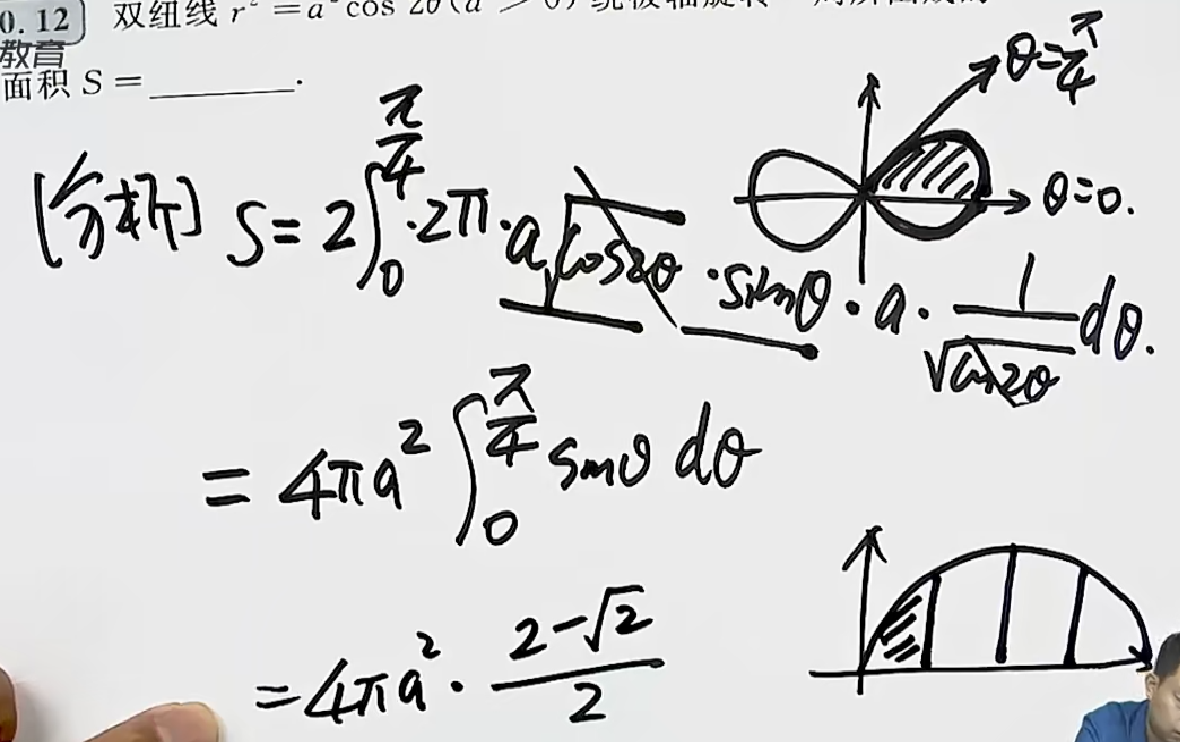 0.12 双纽线 r² = a² cos 2θ (a > 0) 绕极轴旋转
教育
面积 S = ________.
θ=π/4
θ=0.
[分析] S = 2∫₀^{π/4} ·2π·a√cos2θ ·sinθ · a · 1/√cos2θ dθ.
= 4πa² ∫₀^{π/4} sinθ dθ
= 4πa² · (2-√2)/2